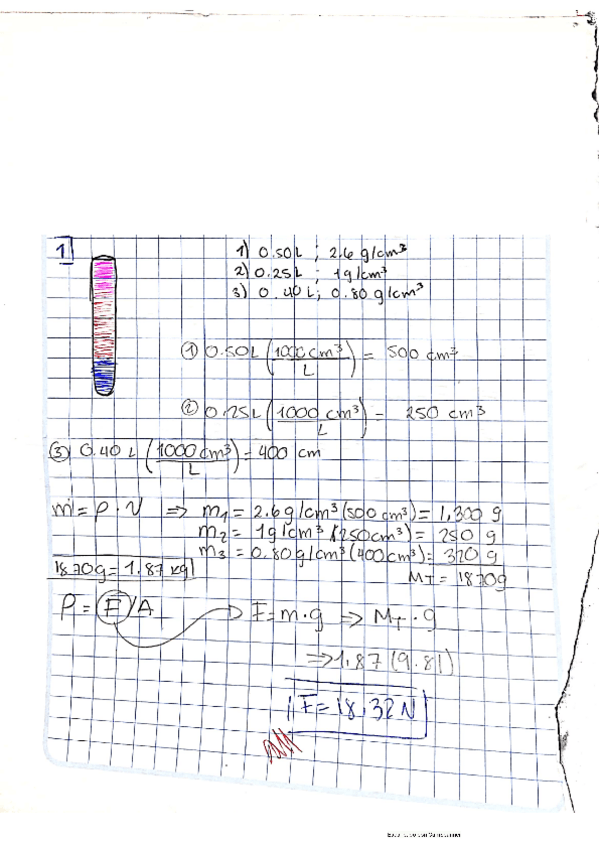 1
1) 0.50L ; 2.6 g/cm³
2) 0.25L ; 1g/cm³
3) 0.40L; 0.80 g/cm³
① 0.50L (1000cm³/L) = 500 cm³
② 0.25L (1000 cm³/L) = 250 cm³
③ 0.40 L (1000cm³/L) = 400 cm
m = ρ · V ⇒ m₁ = 2.6g/cm³(500cm³) = 1,300 g
m₂ = 1g/cm³(250cm³) = 250 g
m₃ = 0.80g/cm³(400cm³) = 320 g
1870g = 1.87 kg
M_T = 1870g
P = F/A → F = m·g ⇒ M_T · g
⇒ 1.87 (9.81)
F = 18.32 N